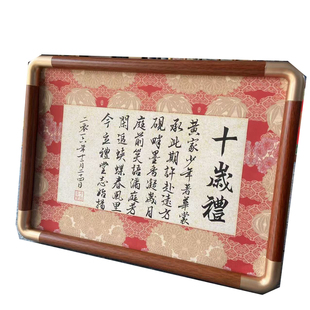 十歲禮
黃家少年著華裳
承此期許赴遠方
硯畔墨香凝歲月
庭前笑語滿庭芳
閒追蛺蝶春風里
今立禮堂志始揚
二〇一六年十月二十四日